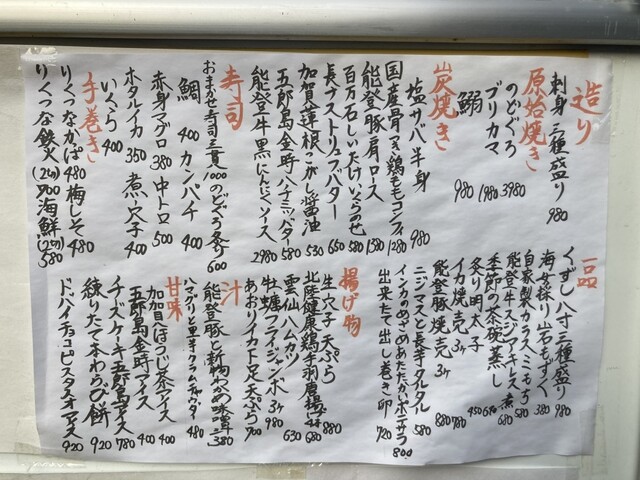 造り
刺身 三種盛り 980
原始焼き
のどぐろ 3980
ブリカマ 1980
鰯 980
炭焼き
塩サバ 半身 980
国産骨付き鶏ももコンフィ 1280
能登豚肩ロース 1380
百万石しいたけいくらのせ 580
長ナストリュフバター 650
加賀蓮根こがし醤油 530
五郎島金時ハチミツバター 580
能登牛 黒にんにくソース 2980
寿司
おまかせ寿司三貫 1000
のどぐろ炙り 600
鯛 400
カンパチ 400
赤身マグロ 380
中トロ 500
ホタルイカ 350
煮穴子 400
いくら 400
手巻き
りくつなかっぱ 480
梅しそ 480
りくつな鉄火(2ヶ) 900
海鮮(2ヶ) 580
一品
くずし八寸三種盛り 980
海女採り岩もずく 380
自家製カラスミもち 580
能登牛スジアキレス煮 680
季節の茶碗蒸し 450
炙り明太子 680
イカ焼売 3ヶ 780
能登豚焼売 3ヶ 880
ニジマスと長芋タルタル 580
インカのめざめあたたかいポテサラ 800
出来たて出し巻き卵 720
揚げ物
生穴子天ぷら 880
北陸健康鶏手羽唐揚 680
雲仙ハムカツ 630
牡蠣フライジャンボ 3ヶ 980
あおりイカ下足天ぷら 700
汁
能登豚と新物わかめ味噌 380
ハマグリと里芋クラムチャウダー 480
甘味
加賀八ほうじ茶アイス 400
五郎島金時アイス 400
チーズケーキ五郎島アイス 780
練りたて本わらび餅 920
ドバイチョコピスタチオアイス 920